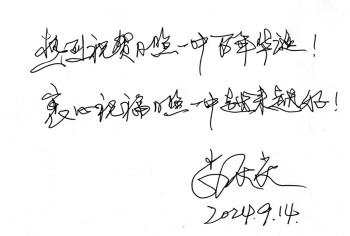 热烈祝贺日照一中百年华诞！
衷心祝福日照一中越来越好！
2024.9.14.